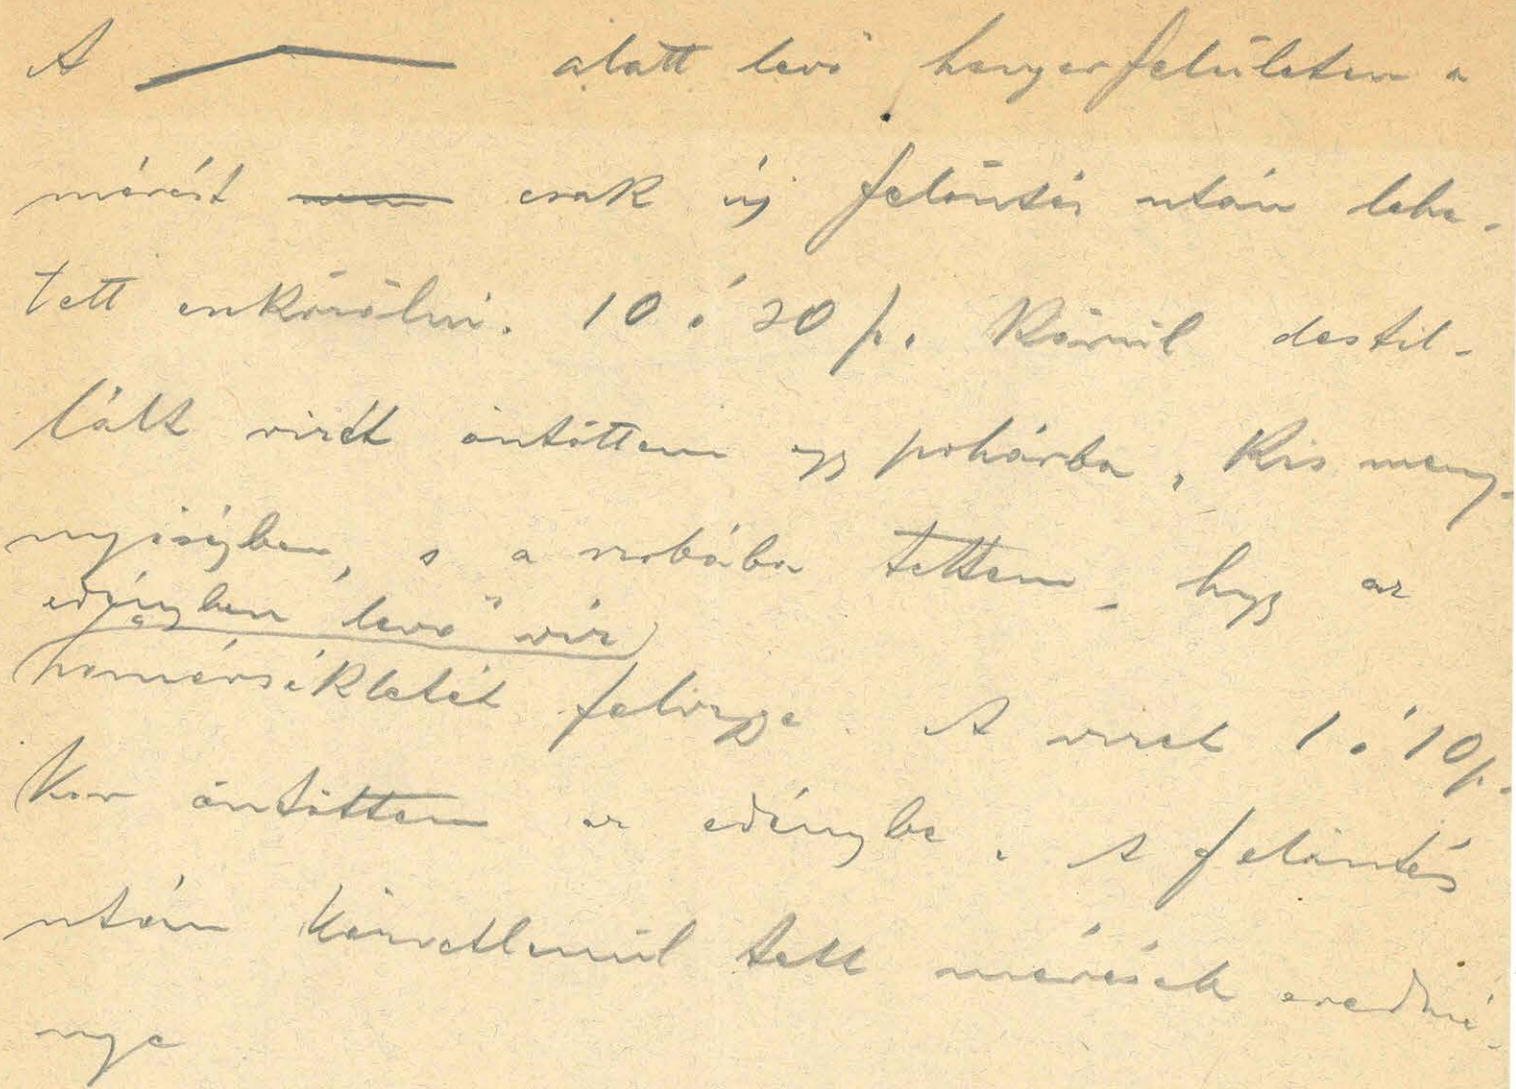 A alatt levő hengerfelületen a
mérést csak új felöntés után lehe-
tett eszközölni. 10 ó 20 p. körül destil-
lált vizet öntöttem egy pohárba, kis meny-
nyiségben, s a szobába tettem, hogy az
edényben levő víz
hőmérsékletét felvegye. A vizet 1 ó 10 p.
kor öntöttem az edénybe. A felöntés
után közvetlenül tett mérések eredmé-
nye